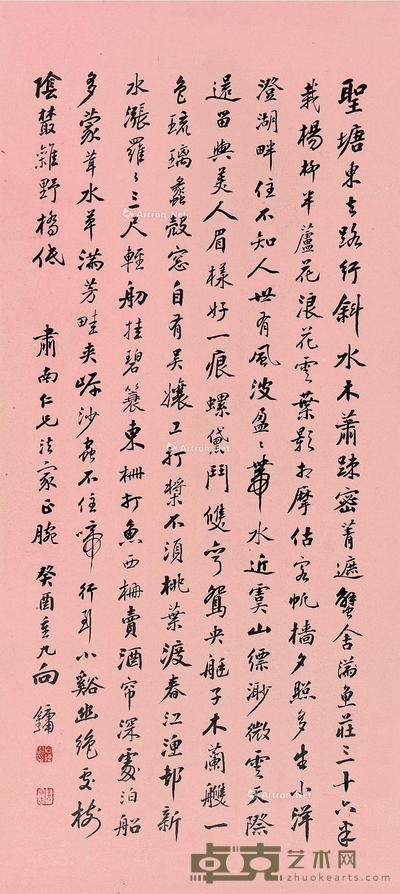 聖塘東去路行斜水木蕭疎密菁遮蟹舍漁莊三十六半
栽楊柳半蘆花浪花雲葉影相摩估客帆檣夕照多生小洋
澄湖畔住不知人世有風波盈〻帶水近虞山縹渺微雲天際
還留與美人眉樣好一痕螺黛鬥雙彎鴛央艇子木蘭艭一
色琉璃蠡殼窓自有吳孃工打槳不須桃葉渡春江湮邨新
水漲羅〻三尺輕舠挂碧簑東柵打魚西柵賣酒帘深處泊船
多蒙茸水草滿芳畦夾岸沙蟲不住啼行到小谿幽絕處樹
陰叢雜野橋低
肅南仁兄法家正腕 癸酉重九 向鏞
卓克艺术网
www.zhuokearts.com
Artron.Net